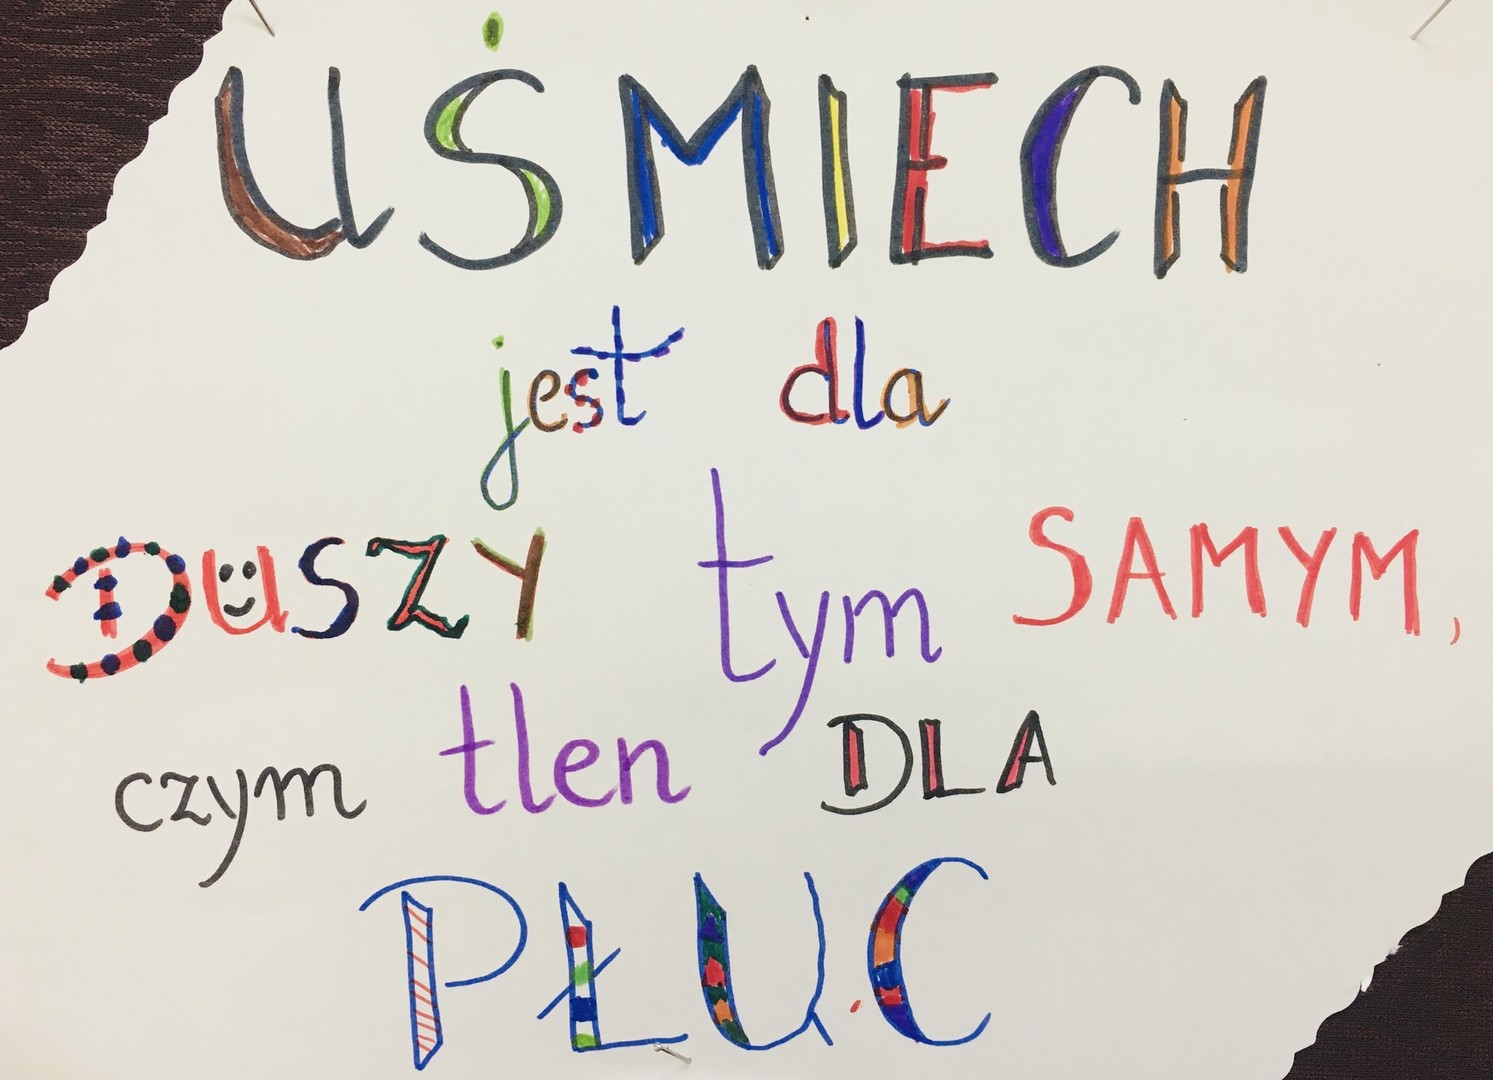 UŚMIECH
jest dla
DUSZY tym SAMYM,
czym tlen DLA
PŁUC